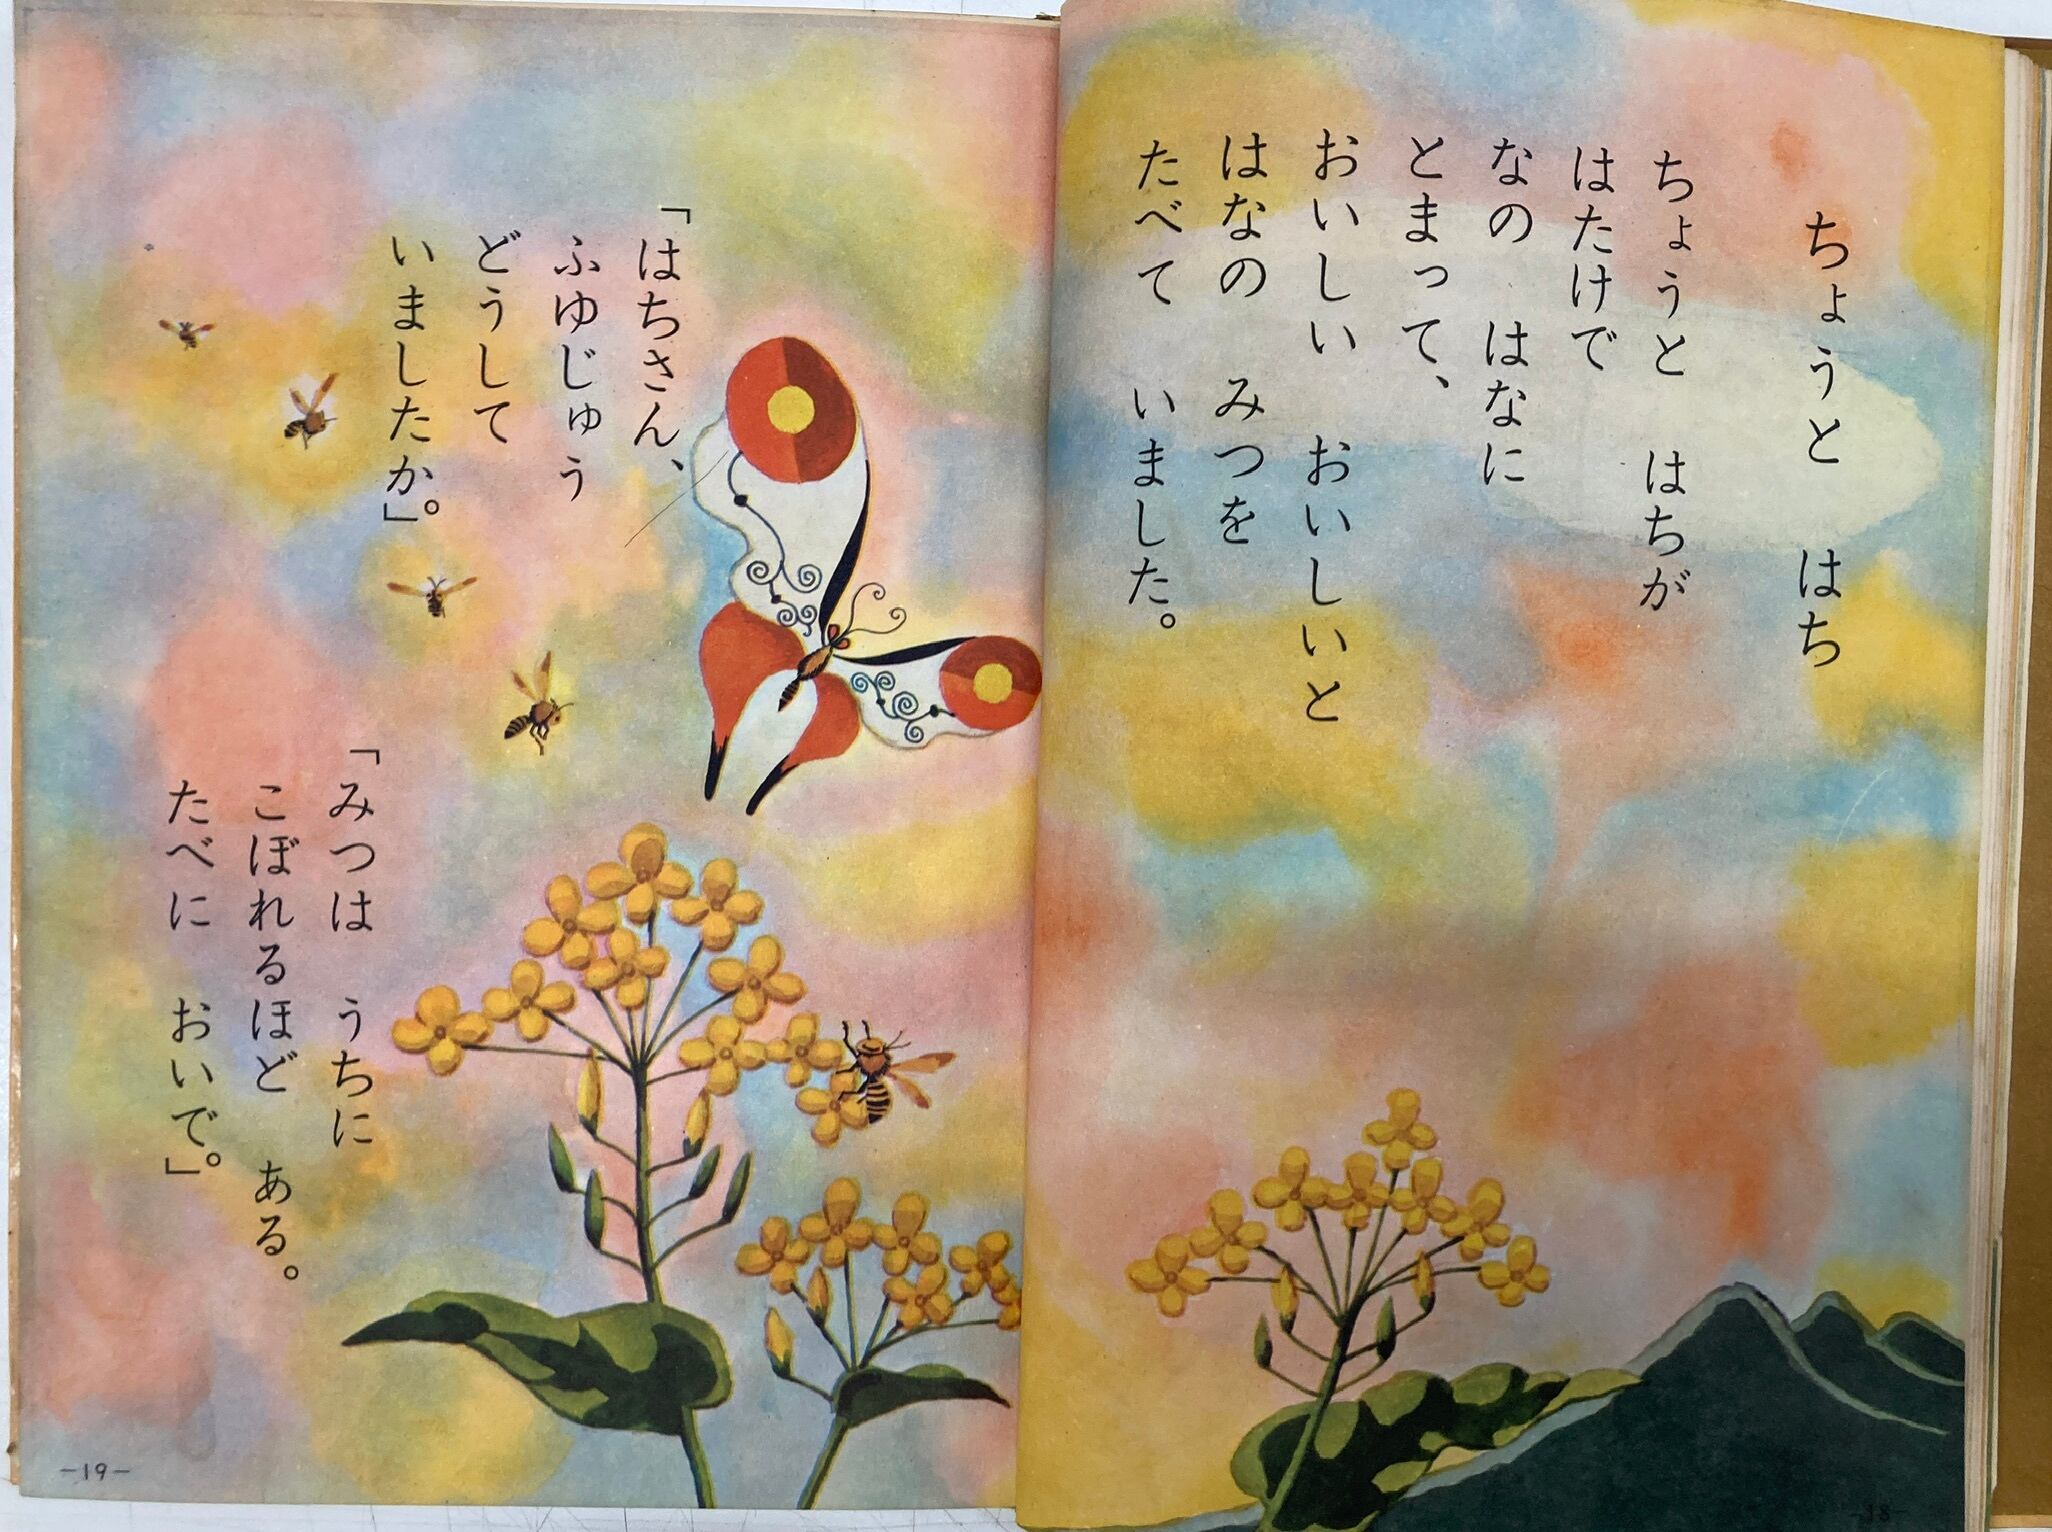 ちょうと はち
ちょうと はちが
はたけで
なの はなに
とまって、
おいしい おいしいと
はなの みつを
たべて いました。
-18-
「はちさん、
ふゆじゅう
どうして
いましたか。」
「みつは うちに
こぼれるほど ある。
たべに おいで。」
-19-